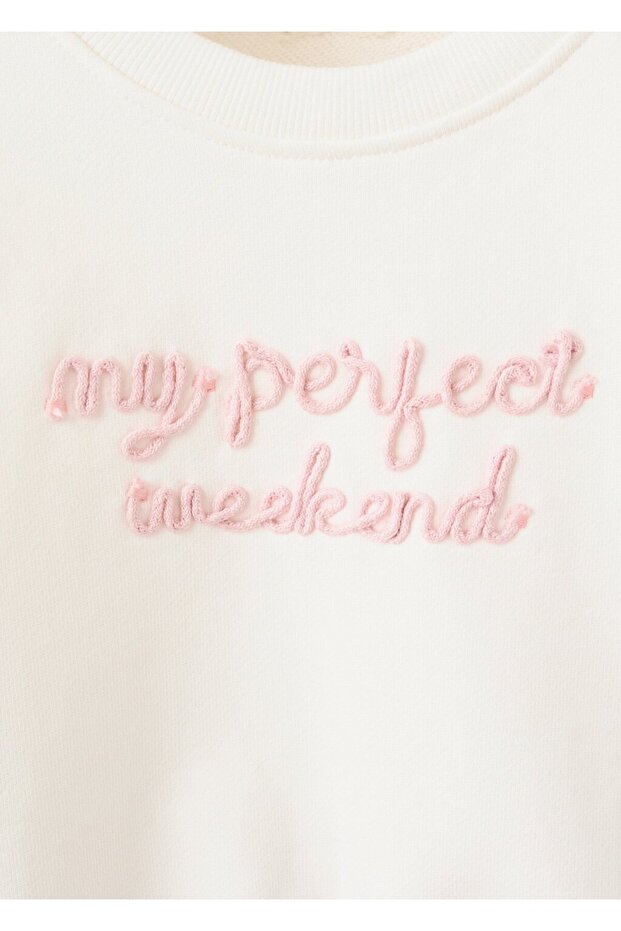 my perfect
weekend